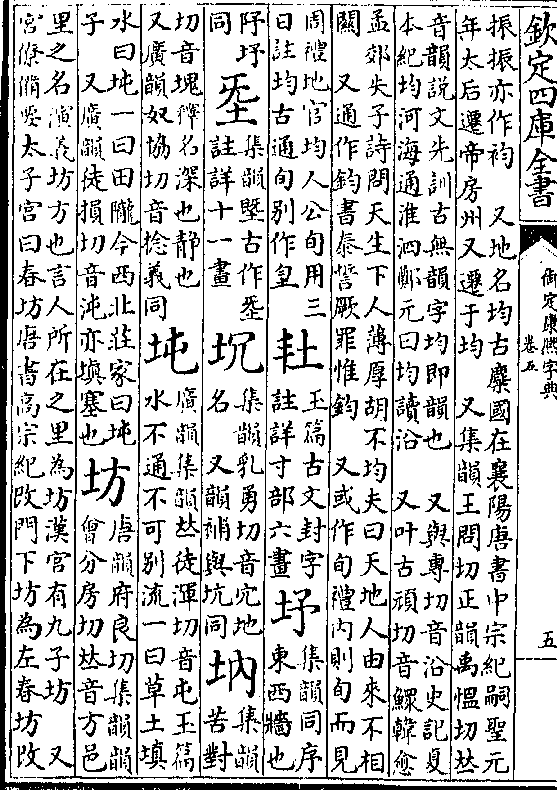 欽定四庫全書
御定康熙字典
卷五
五
振振亦作袀　又地名均古麇國在襄陽唐書中宗紀嗣聖元
年太后遷帝房州又遷于均　又集韻王問切正韻禹慍切𠀤
音韻説文先訓古無韻字均即韻也　又與專切音沿史記夏
本紀均河海通淮泗鄭元曰均讀沿　又叶古頑切音鰥韓愈
孟郊失子詩問天生下人薄厚胡不均夫曰天地人由來不相
關　又通作鈞書泰誓厥罪惟鈞　又或作旬禮内則旬而見
周禮地官均人公旬用三
日註均古通旬别作皇
𡉚
玉篇古文封字
註詳寸部六畫
㘧
集韻同序
東西牆也
同
坖
集韻墍古作坖
註詳十一畫
坈
集韻乳勇切音宂地
名　又韻補與坑同
㘨
集韻
苦對
切音塊釋名深也靜也
又廣韻奴協切音捻義同
坉
廣韻集韻𠀤徒渾切音屯玉篇
水不通不可别流一曰草土填
水曰坉一曰田隴今西北莊家曰坉
子　又廣韻徒損切音沌亦填塞也
坊
唐韻府良切集韻韻
會分房切𠀤音方邑
里之名演義坊方也言人所在之里為坊漢宮有九子坊　又
宮僚備要太子宮曰春坊唐書高宗紀改門下坊為左春坊改